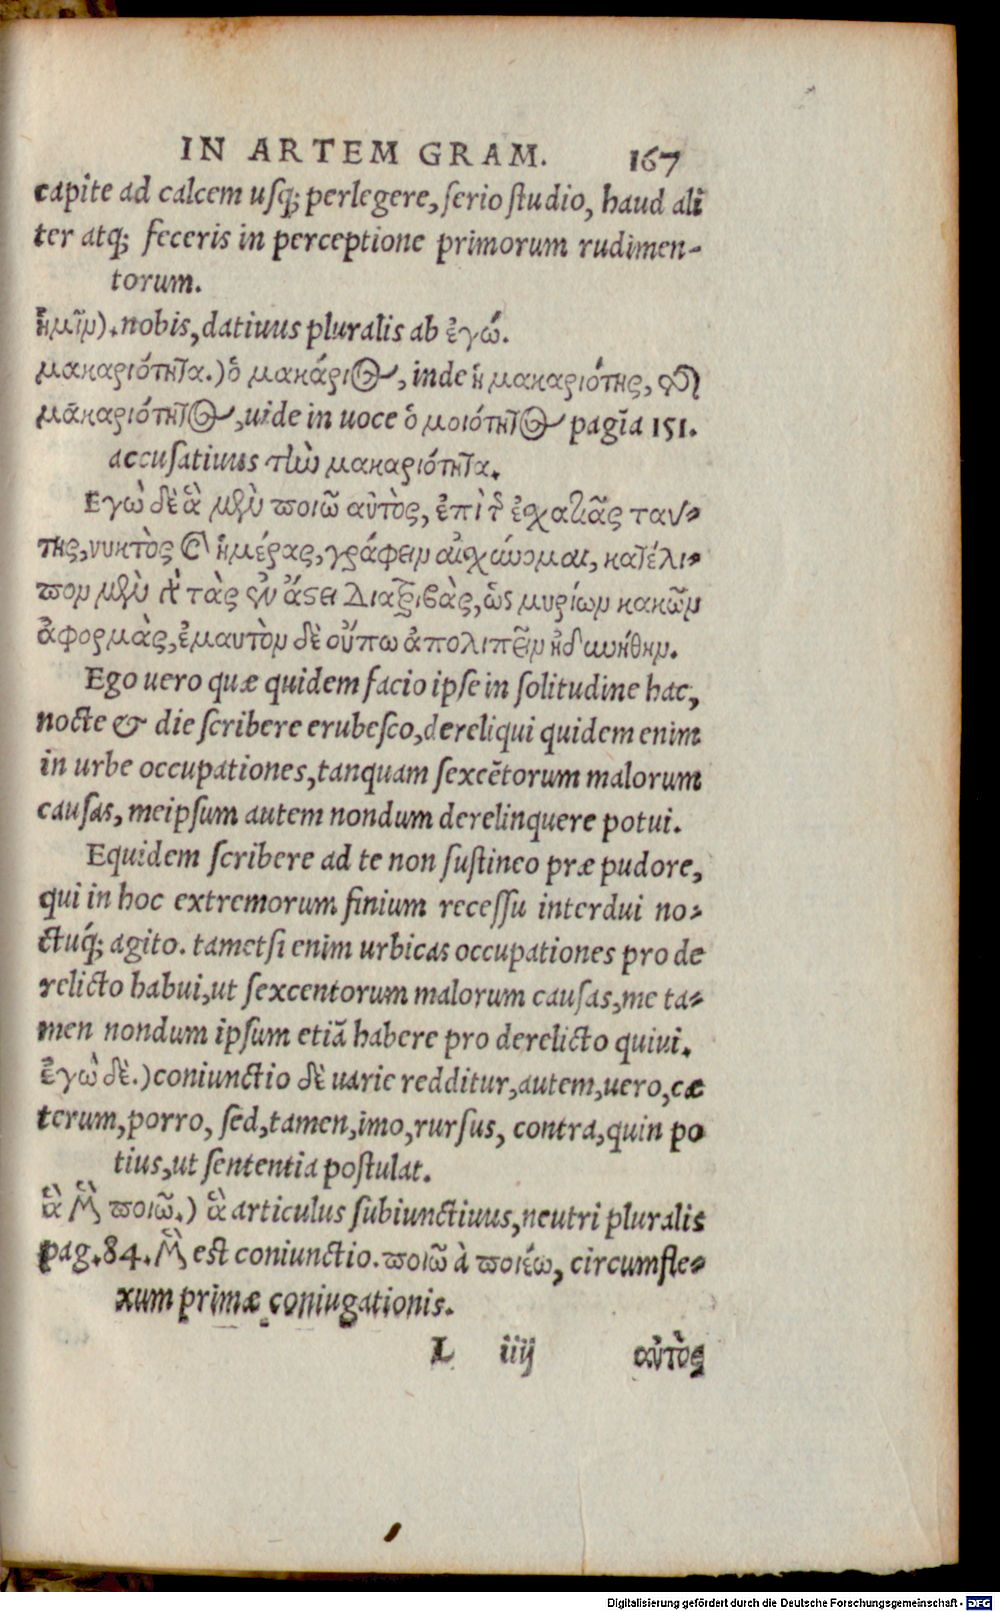 IN ARTEM GRAM. 167
capite ad calcem usq; perlegere, serio studio, haud ali
ter atq; feceris in perceptione primorum rudimen-
torum.
ἡμῖν).nobis, datiuus pluralis ab ἐγώ.
μακαριότητα.) ὁ μακάριος, inde ἡ μακαριότης, τῆ
μακαριότητος, uide in uoce ὁμοιότητος pagīa 151.
accusatiuus τὴν μακαριότητα.
Εγὼ δὲ ἃ μὲν ποιῶ αὐτὸς, ἐπὶ τ̃ ἐσχατιᾶς ταύ-
της, νυκτὸς καὶ ἡμέρας, γράφειν αἰσχύνομαι, κατέλι-
πον μὲν γὰρ τὰς ἐν ἄστει διατριβὰς, ὡς μυρίων κακῶν
ἀφορμὰς, ἐμαυτὸν δὲ οὔπω ἀπολιπεῖν ἠδυνήθην.
Ego uero quæ quidem facio ipse in solitudine hac,
nocte & die scribere erubesco, dereliqui quidem enim
in urbe occupationes, tanquam sexcētorum malorum
causas, meipsum autem nondum derelinquere potui.
Equidem scribere ad te non sustineo præ pudore,
qui in hoc extremorum finium recessu interdui no-
ctuq́; agito. tametsi enim urbicas occupationes pro de
relicto habui, ut sexcentorum malorum causas, me ta-
men nondum ipsum etiā habere pro derelicto quiui.
ἐγὼ δὲ.) coniunctio δὲ uarie redditur, autem, uero, cæ
terum, porro, sed, tamen, imo, rursus, contra, quin po
tius, ut sententia postulat.
ἃ μὲν ποιῶ.) ἃ articulus subiunctiuus, neutri pluralis
pag. 84. μὲν est coniunctio. ποιῶ à ποιέω, circumfle-
xum primæ coniugationis.
L iiij αὐτὸς
Digitalisierung gefördert durch die Deutsche Forschungsgemeinschaft - DFG